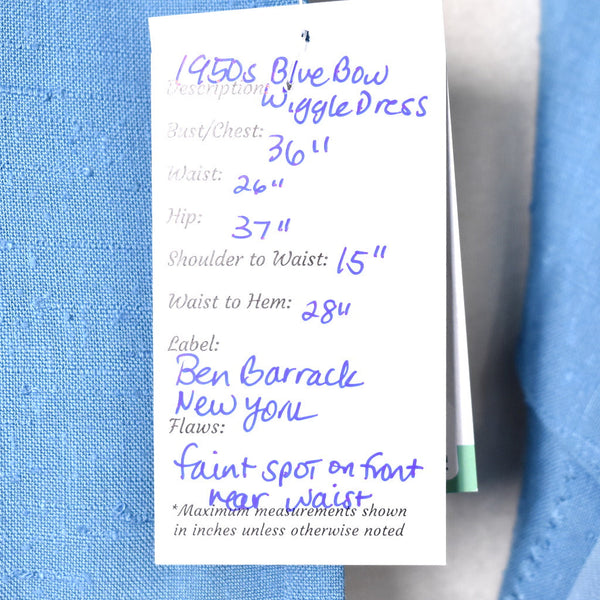 1950s Blue Bow
Description:
Wiggle Dress
Bust/Chest: 36"
Waist: 26"
Hip: 37"
Shoulder to Waist: 15"
Waist to Hem: 28"
Label:
Ben Barrack
New York
Flaws:
faint spot on front
near waist
*Maximum measurements shown
in inches unless otherwise noted